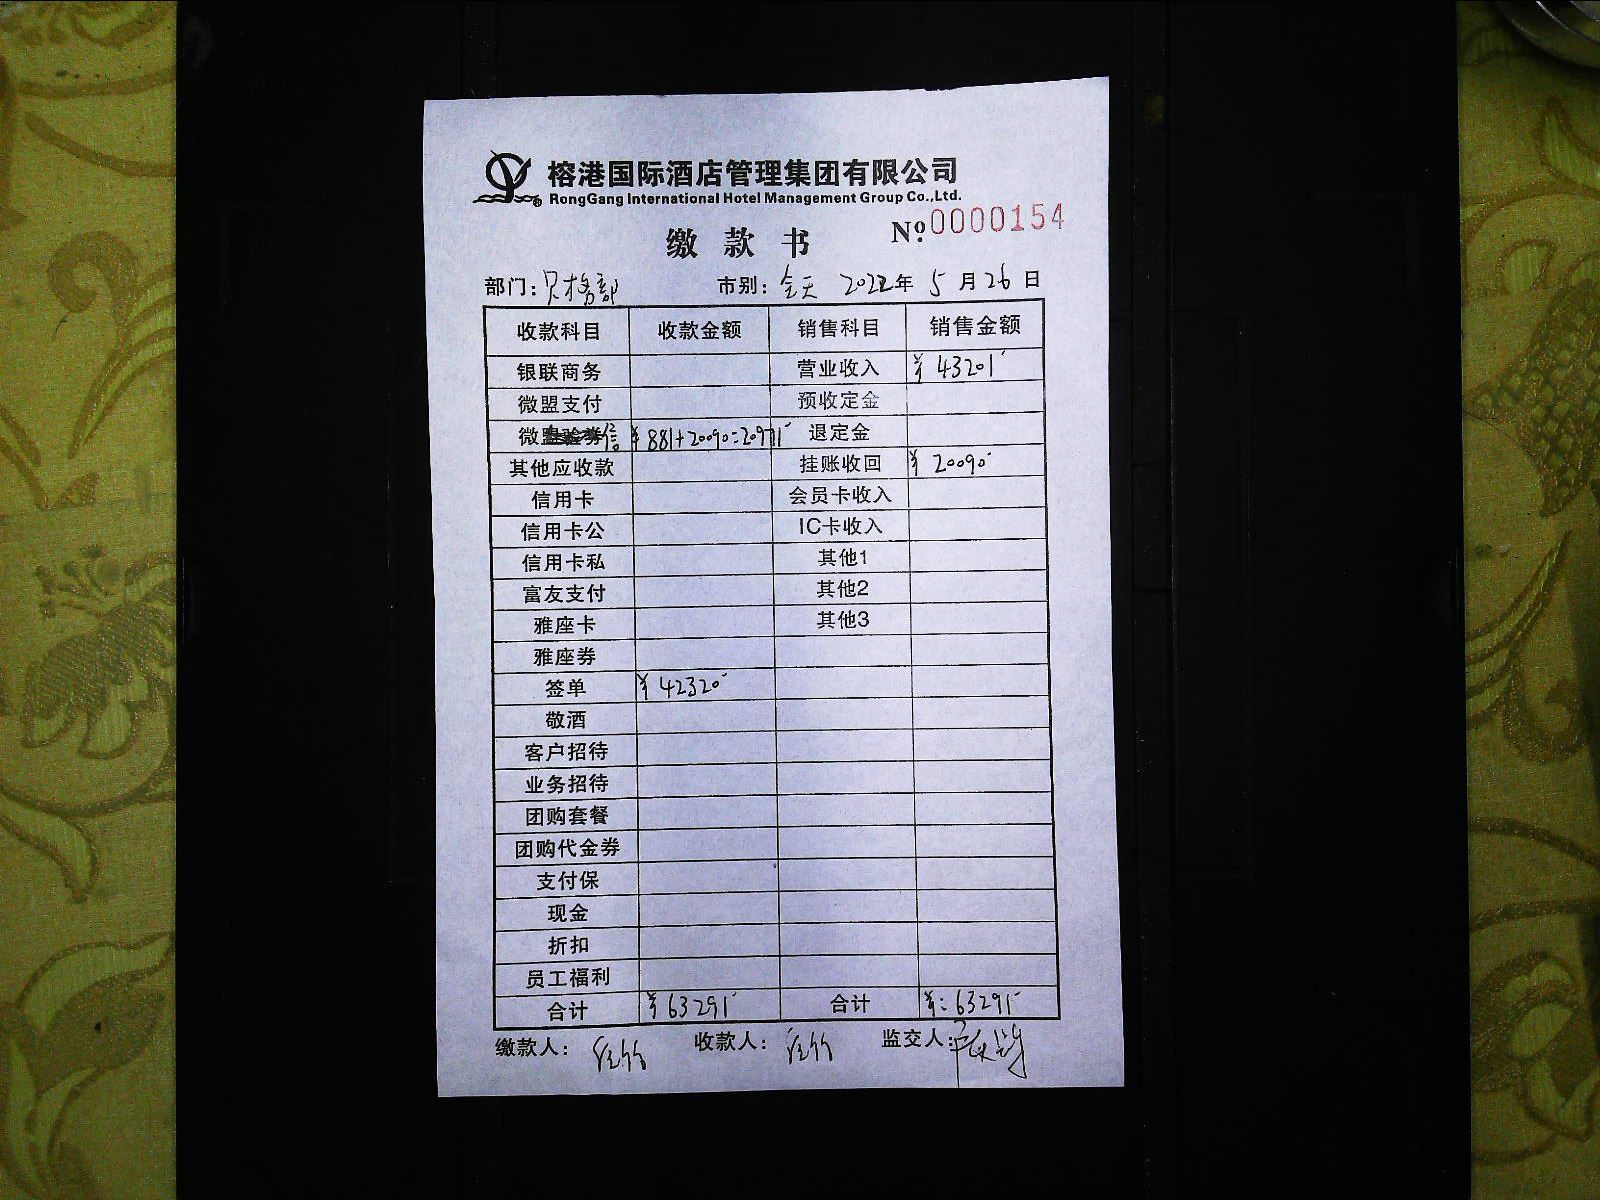 榕港国际酒店管理集团有限公司
RongGang International Hotel Management Group Co.,Ltd.
缴款书 No.0000154
部门: 市别: 全天 2022年 5月26日
收款科目 收款金额 销售科目 销售金额
银联商务 营业收入 ¥ 43201
微盟支付 预收定金
微信 ¥ 881+20090=20971 退定金
其他应收款 挂账收回 ¥ 20090
信用卡 会员卡收入
信用卡公 IC卡收入
信用卡私 其他1
富友支付 其他2
雅座卡 其他3
雅座券
签单 ¥ 42320
敬酒
客户招待
业务招待
团购套餐
团购代金券
支付保
现金
折扣
员工福利
合计 ¥ 63291 合计 ¥: 63291
缴款人: 收款人: 监交人: